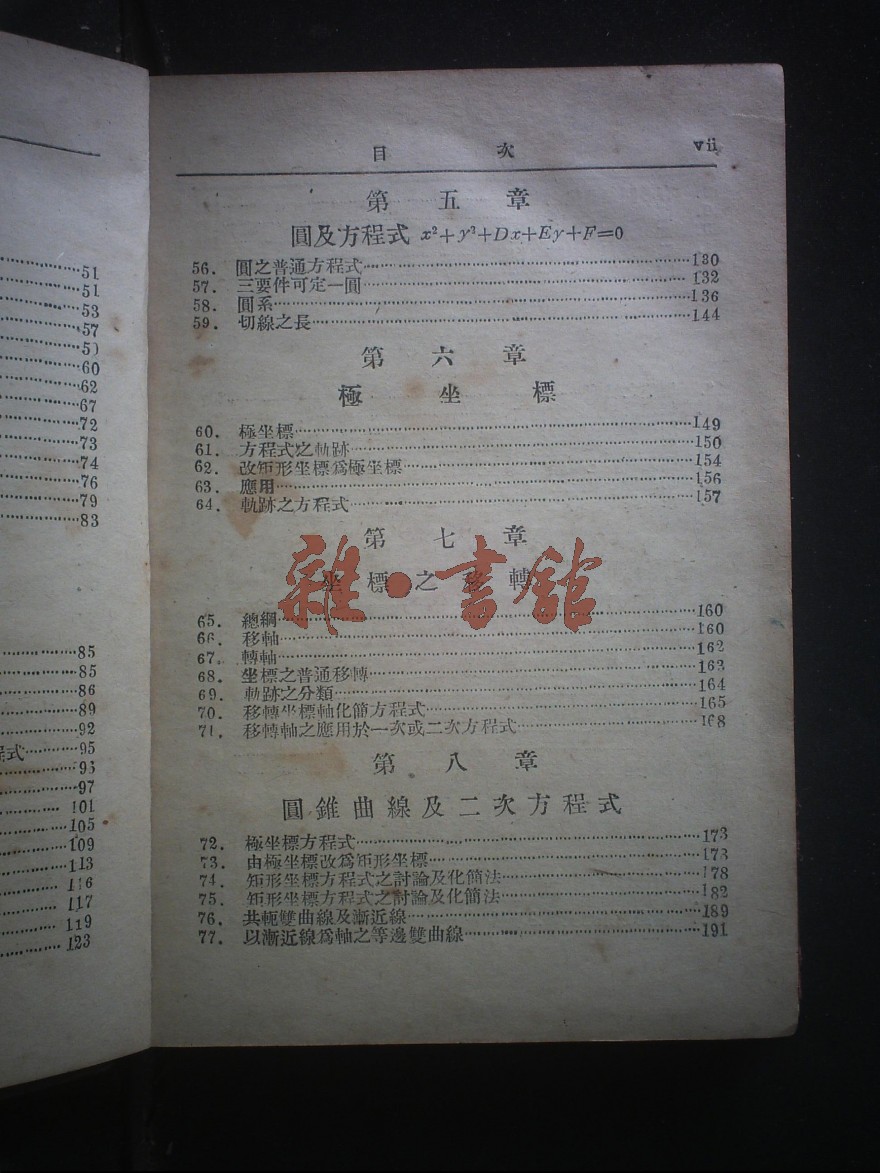 51
51
53
57
5)
60
62
67
72
73
74
76
79
83
85
85
86
89
92
程式 95
95
97
101
105
109
113
116
117
119
123
目 次 vii
第 五 章
圓及方程式 x²+y²+Dx+Ey+F=0
56. 圓之普通方程式 130
57. 三要件可定一圓 132
58. 圓系 136
59. 切線之長 144
第 六 章
極 坐 標
60. 極坐標 149
61. 方程式之軌跡 150
62. 改矩形坐標爲極坐標 154
63. 應用 156
64. 軌跡之方程式 157
第 七 章
坐標之移轉
雜·書館
65. 總綱 160
66. 移軸 160
67. 轉軸 162
68. 坐標之普通移轉 163
69. 軌跡之分類 164
70. 移轉坐標軸化簡方程式 165
71. 移轉軸之應用於一次或二次方程式 168
第 八 章
圓錐曲線及二次方程式
72. 極坐標方程式 173
73. 由極坐標改爲矩形坐標 173
74. 矩形坐標方程式之討論及化簡法 178
75. 矩形坐標方程式之討論及化簡法 182
76. 共軛雙曲線及漸近線 189
77. 以漸近線爲軸之等邊雙曲線 191